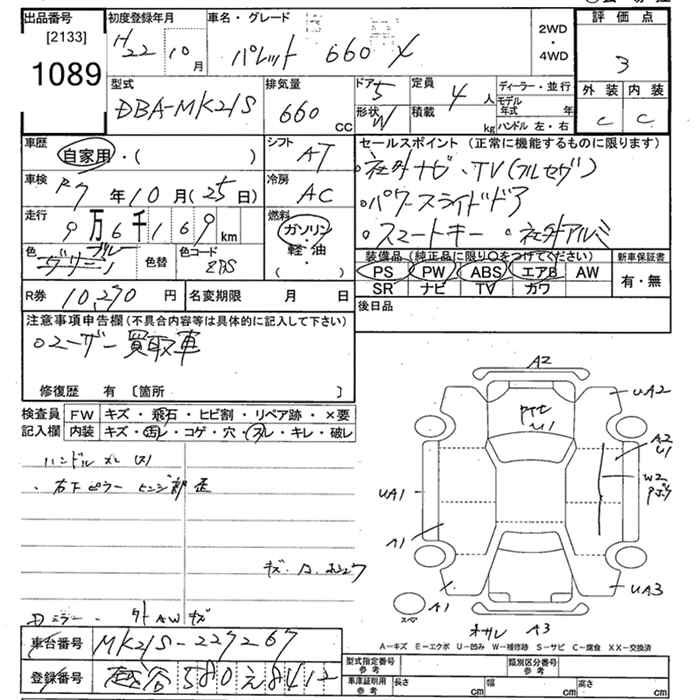 出品番号
[2133]
1089
初度登録年月
H22 10月
車名・グレード
パレット 660 X
2WD
・
4WD
評価点
3
外装 内装
C C
型式
DBA-MK21S
排気量
660 CC
ドア 5
形状 W
定員 4人
積載 kg
ディーラー・並行
モデル年式 年
ハンドル 左・右
車歴
自家用・( )
シフト AT
車検 R7年10月(25日)
冷房 AC
走行 9万6千169km
燃料
ガソリン
軽・油
・( )
色 ブルー
グリーン
色替
色コード
R券 10,290円
名変期限 月 日
セールスポイント (正常に機能するものに限ります)
・社外ナビ・TV(フルセグ)
・パワースライドドア
・スマートキー ・社外アルミ
装備品(純正品に限り○をつけてください)
PS PW ABS エアB AW
SR ナビ TV カワ
新車保証書
有・無
後日品
注意事項申告欄(不具合内容等は具体的に記入して下さい)
○ユーザー買取車
修復歴 有〔箇所 〕
検査員 FW キズ・飛石・ヒビ割・リペア跡・×要
記入欄 内装 キズ・汚レ・コゲ・穴・スレ・キレ・破レ
ハンドルスレ
・右下ピラーヒンジ部
Dミラー 外AWキズ
A2
UA2
U1
A2
U1
W2
UA1
A1
A1
UA3
A3
スペア
A－キズ E－エクボ U－凹み W－補修跡 S－サビ C－腐食 XX－交換済
車台番号 MK21S-227267
登録番号 越谷 580 え 8412
型式指定番号
参考
類別区分番号
参考
車庫証明用
参考
長さ cm
幅 cm
高さ cm